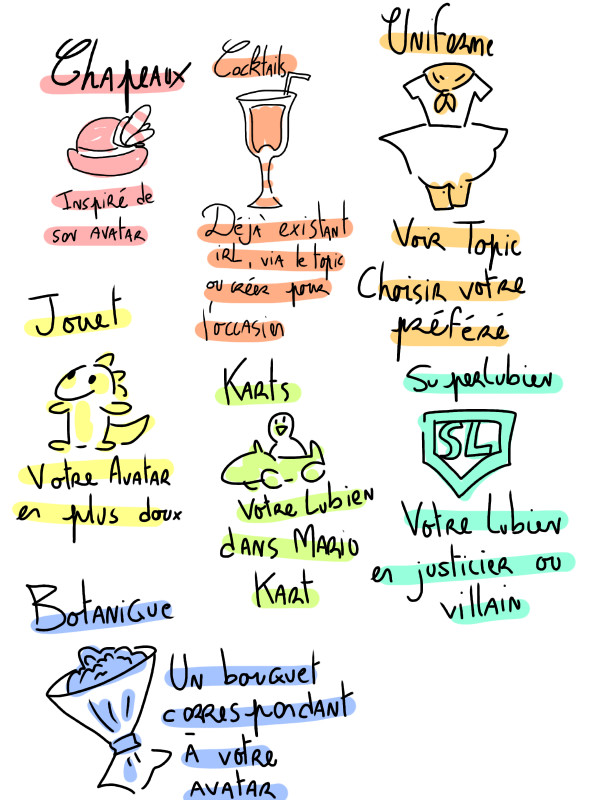 Chapeaux
Inspiré de
son avatar
Cocktails
Déjà existant
irl, via le topic
ou créer pour
l'occasion
Uniforme
Voir Topic
Choisir votre
préféré
Jouet
Votre Avatar
en plus doux
Karts
Votre Lubien
dans Mario
Kart
SuperLubien
SL
Votre Lubien
en justicier ou
villain
Botanique
Un bouquet
correspondant
à votre
avatar